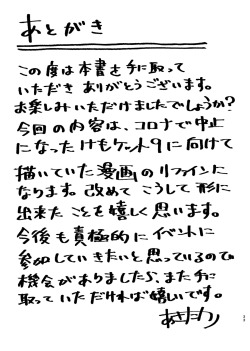 あとがき
この度は本書を手に取って
いただき ありがとうございます。
お楽しみいただけましたでしょうか?
今回の内容は、コロナで中止
になった けもケット9に向けて
描いていた漫画のリファインに
なります。改めて こうして 形に
出来た ことを嬉しく思います。
今後も積極的にイベントに
参加していきたいと思っているので
機会がありましたら、また手に
取っていただければ嬉しいです。